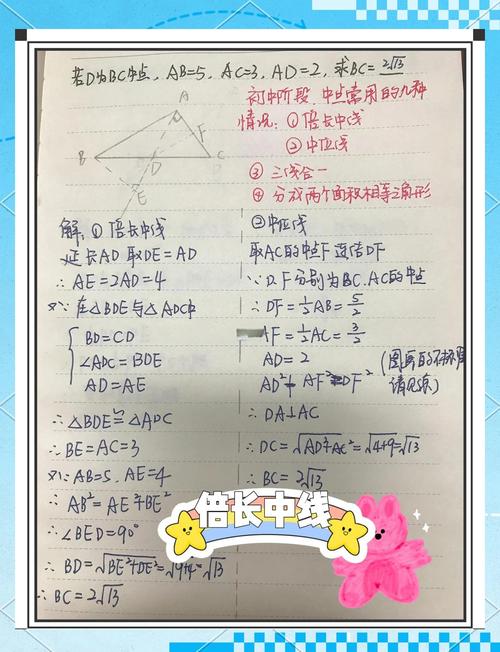 若D为BC中点，AB=5，AC=3，AD=2，求BC=2√13
初中阶段，中点常用的几种
情况：①倍长中线
②中位线
③三线合一
④分成两个面积相等三角形
A
F
B
D
C
E
解：①倍长中线
延长AD 取DE=AD
∴AE=2AD=4
又∵在△BDE与△ADC中
BD=CD
∠ADC=BDE
AD=AE
∴△BDE≌△ADC
∴BE=AC=3
又∵AB=5，AE=4
∴AB²=AE²+BE²
∴∠BED=90°
∴BD=√BE²+DE²=√9+4=√13
∴BC=2√13
②中位线
取AC的中点F连结DF
∵D.F分别为BC.AC的中点
∴DF=1/2AB=5/2
AF=1/2AC=3/2
AD=2
AD²+AF²=DF²
(图画的不标准
请见谅)
∴DA⊥AC
∴DC=√AD²+AC²=√4+9=√13
∴BC=2√13
倍长中线